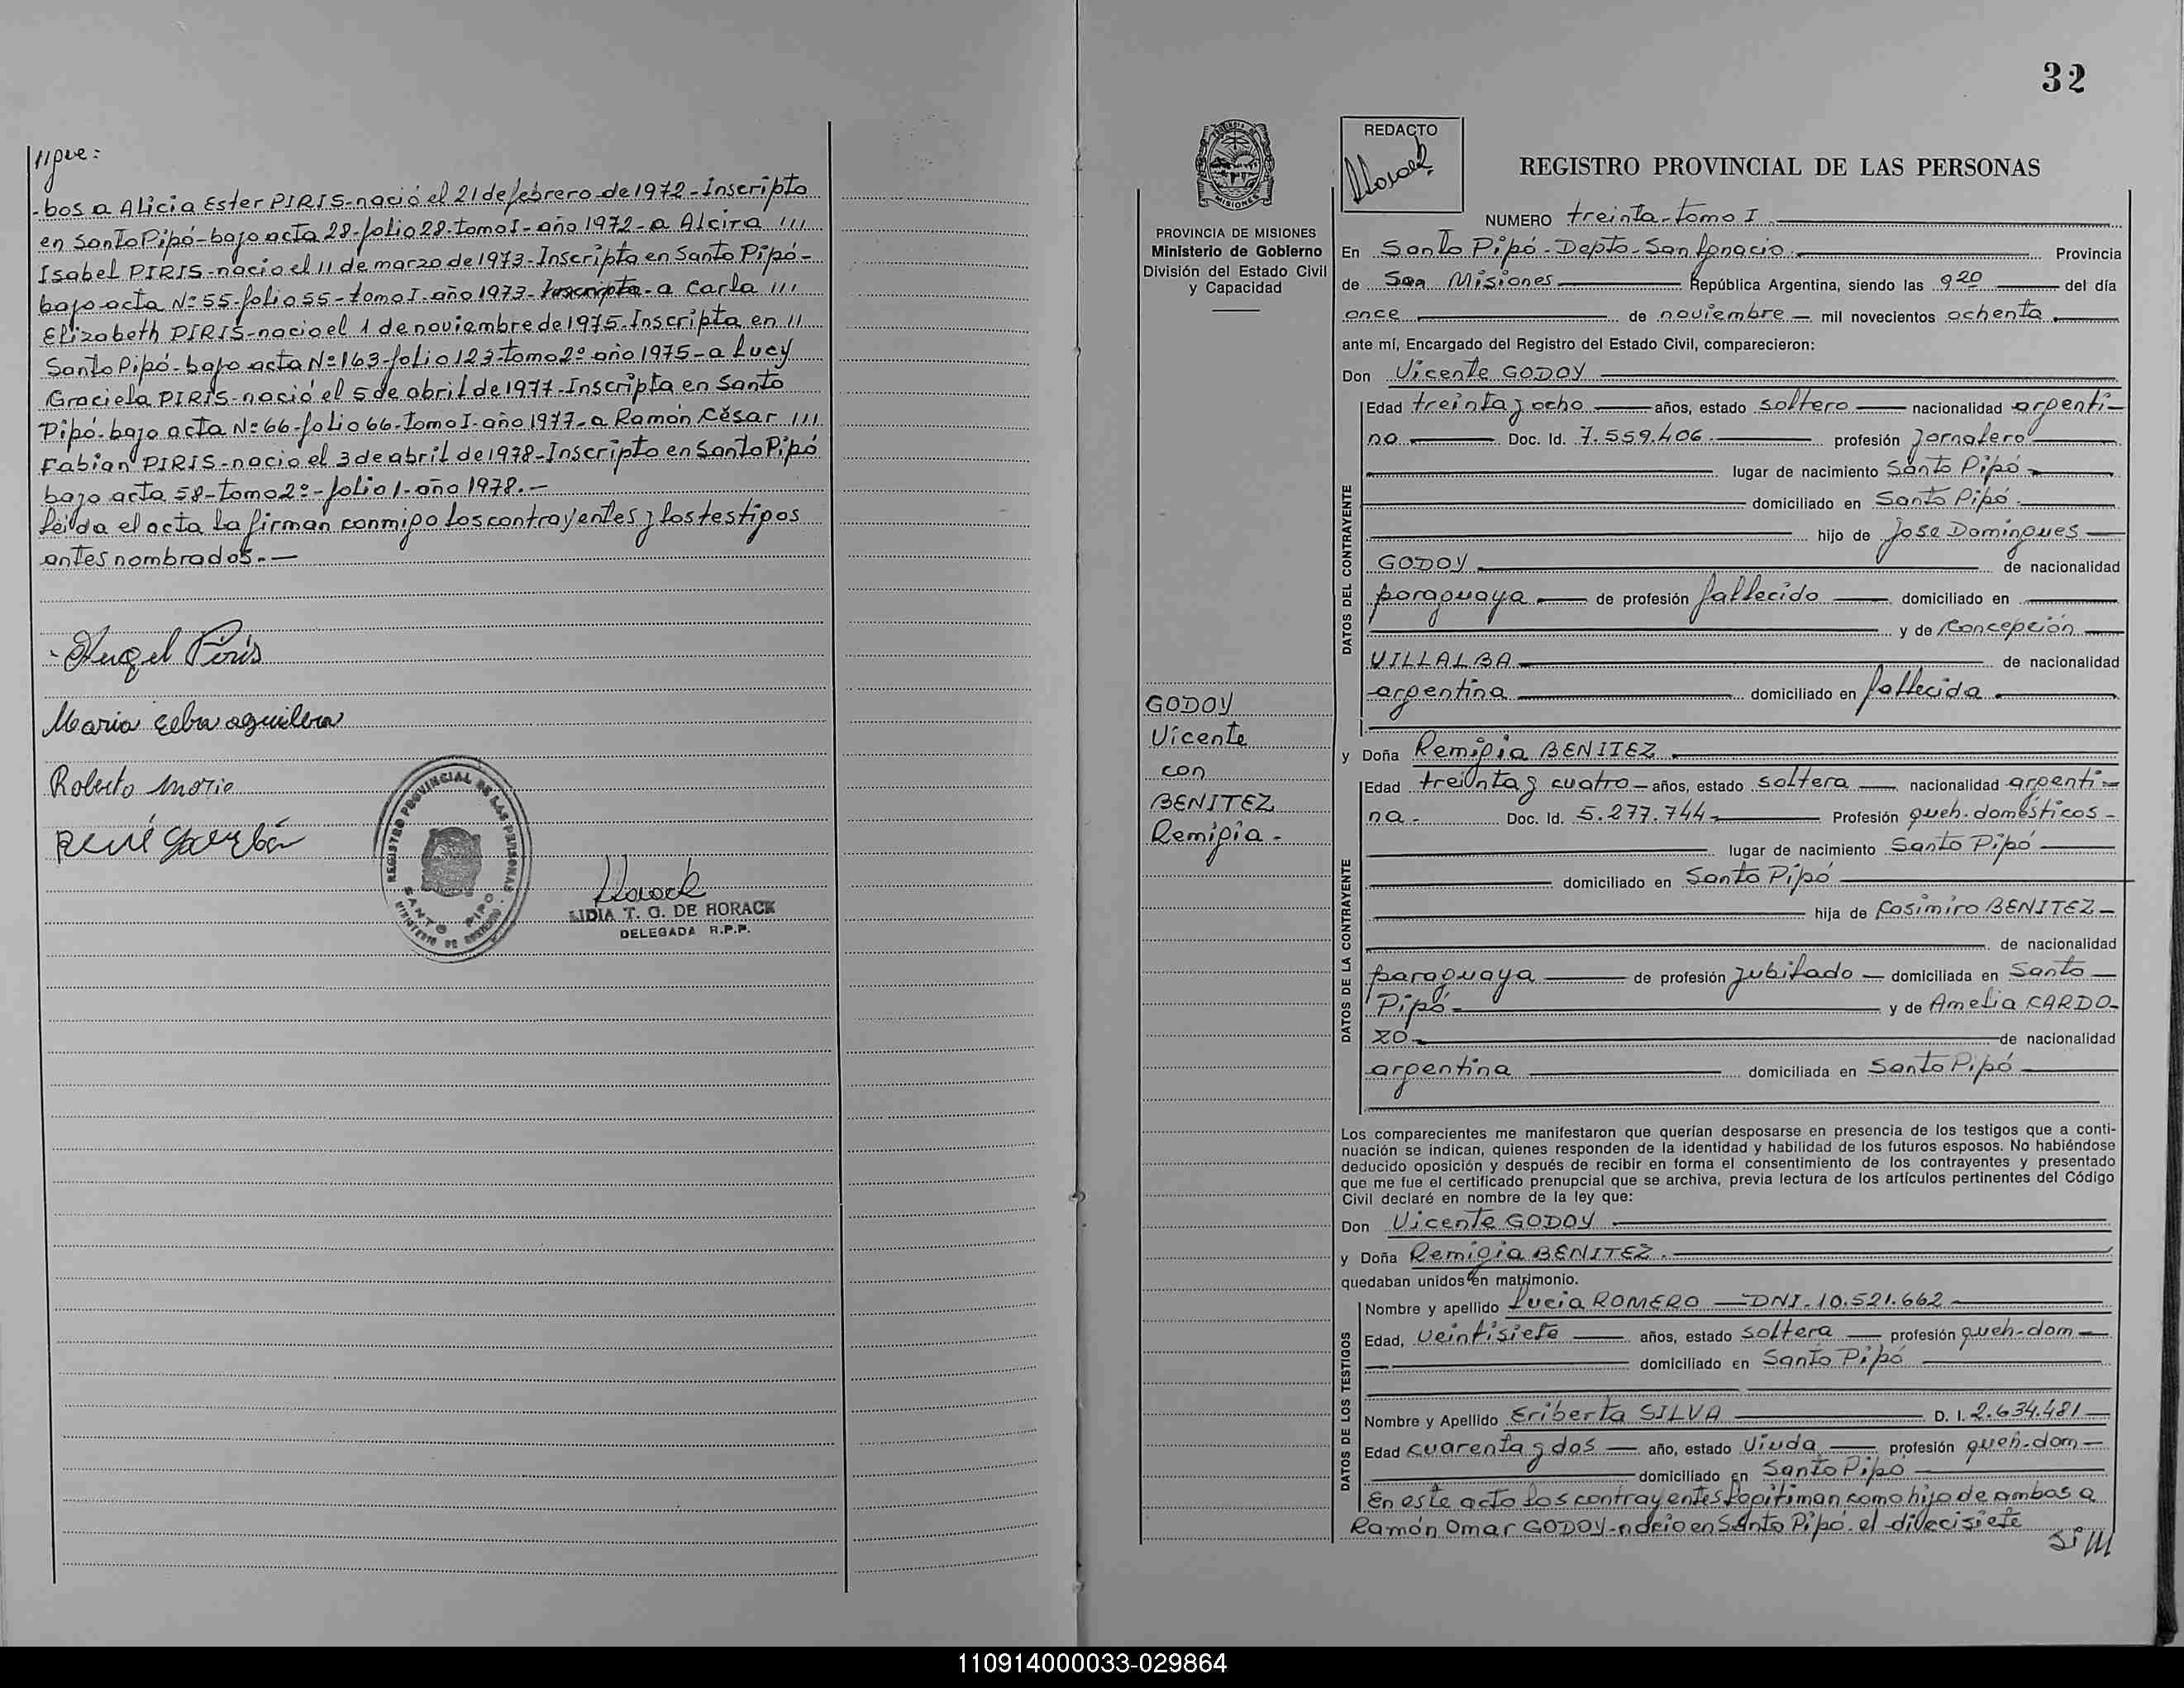 //gue:
-bos a Alicia Ester PIRIS-nació el 21 de febrero de 1972-Inscripto
en Santo Pipó-bajo acta 28-folio 28-tomo I-año 1972-a Alcira ///
Isabel PIRIS-nacio el 11 de marzo de 1973-Inscripta en Santo Pipó-
bajo acta Nº 55-folio 55-tomo I-año 1973-Inscripta-a Carla ///
Elizabeth PIRIS-nacio el 1 de noviembre de 1975-Inscripta en //
Santo Pipó-bajo acta Nº 163-folio 123-tomo 2º año 1975-a Lucy
Graciela PIRIS-nació el 5 de abril de 1977-Inscripta en Santo
Pipó-bajo acta Nº 66-folio 66-tomo I-año 1977-a Ramón César ///
Fabian PIRIS-nacio el 3 de abril de 1978-Inscripto en Santo Pipó
bajo acta 58-tomo 2º-folio 1-año 1978.-
Leida el acta la firman conmigo los contrayentes y los testigos
antes nombrados.-
Angel Piris
Maria Elba aguilera
Roberto
René
REGISTRO PROVINCIAL DE LAS PERSONAS
SANTO PIPO
MINISTERIO DE GOBIERNO
Horack
LIDIA T. G. DE HORACK
DELEGADA R.P.P.
32
PROVINCIA DE MISIONES
Ministerio de Gobierno
División del Estado Civil
y Capacidad
GODOY
Vicente
con
BENITEZ
Remigia-
REDACTO
Horack
REGISTRO PROVINCIAL DE LAS PERSONAS
NUMERO treinta-tomo I
En Santo Pipó-Depto-San Ignacio. Provincia
de San Misiones República Argentina, siendo las 9 20 del día
once de noviembre mil novecientos ochenta.
ante mí, Encargado del Registro del Estado Civil, comparecieron:
Don Vicente GODOY
DATOS DEL CONTRAYENTE
Edad treinta y ocho años, estado soltero nacionalidad argenti-
no Doc. Id. 7.559.406. profesión jornalero
lugar de nacimiento Santo Pipó
domiciliado en Santo Pipó.
hijo de Jose Domingues
GODOY de nacionalidad
paraguaya de profesión fallecido domiciliado en
y de Concepción
VILLALBA de nacionalidad
argentina domiciliado en fallecida
y Doña Remigia BENITEZ
DATOS DE LA CONTRAYENTE
Edad treinta y cuatro años, estado soltera nacionalidad argenti-
na- Doc. Id. 5.277.744 Profesión queh. domésticos-
lugar de nacimiento Santo Pipó
domiciliado en Santo Pipó
hija de Casimiro BENITEZ
de nacionalidad
paraguaya de profesión jubilado domiciliada en Santo
Pipó- y de Amelia CARDO-
ZO de nacionalidad
argentina domiciliada en Santo Pipó
Los comparecientes me manifestaron que querían desposarse en presencia de los testigos que a conti-
nuación se indican, quienes responden de la identidad y habilidad de los futuros esposos. No habiéndose
deducido oposición y después de recibir en forma el consentimiento de los contrayentes y presentado
que me fue el certificado prenupcial que se archiva, previa lectura de los artículos pertinentes del Código
Civil declaré en nombre de la ley que:
Don Vicente GODOY
y Doña Remigia BENITEZ.
quedaban unidos en matrimonio.
DATOS DE LOS TESTIGOS
Nombre y apellido Lucia ROMERO DNI-10.521.662
Edad, veintisiete años, estado soltera profesión queh-dom
domiciliado en Santo Pipó
Nombre y Apellido Eriberta SILVA D. I. 2.634.481
Edad cuarenta y dos año, estado viuda profesión queh-dom
domiciliado en Santo Pipó
En este acto los contrayentes legitiman como hijo de ambos a
Ramón Omar GODOY-nacio en Santo Pipó-el diecisiete
si///
110914000033-029864